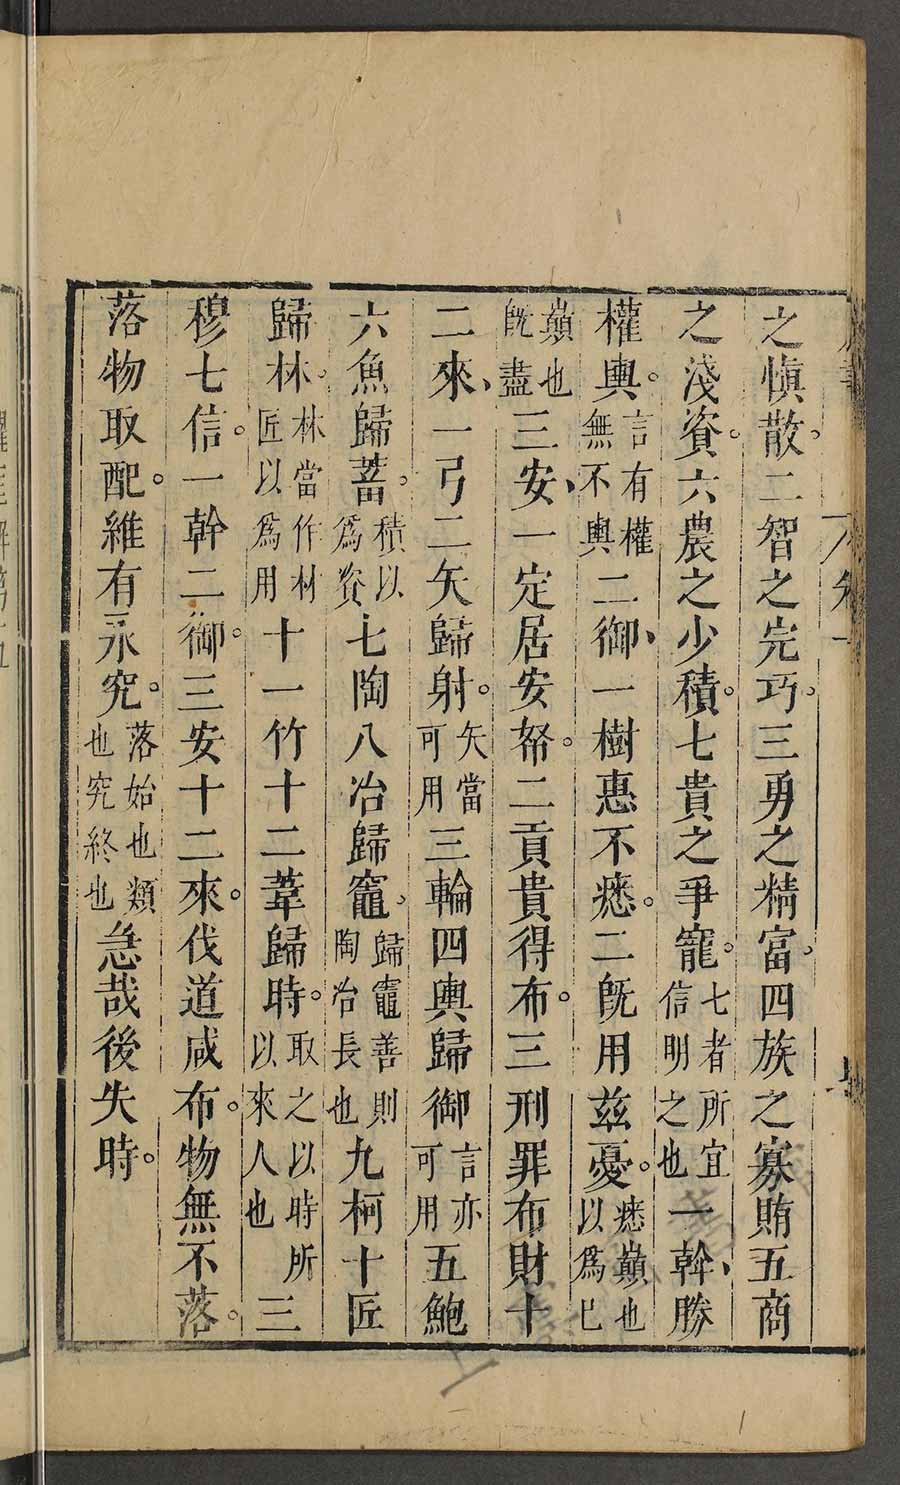 之慎散。二智之完巧。三勇之精富。四族之寡賄五商
之淺資。六農之少積。七貴之爭寵。七者所宜信明之也一幹、勝
權輿。言有權無不輿二御、一樹惠不瘱。二既用兹憂。瘱巔也以爲巳
巔也既盡三安、一定居安帑。二貢貴得布。三刑罪布財十
二來、一弓二矢歸射。矢當可用三輪四輿歸御言亦可用五鮑
六魚歸蓄。積以爲資七陶八冶歸竈。歸竈善則陶冶長也九柯十匠
歸林。林當作材匠以爲用十一竹十二葦歸時。取之以時所以來人也三
穆七信。一幹二御。三安十二來。伐道咸布。物無不落。
落物取配。維有永究。落始也類也究終也急哉後失時。